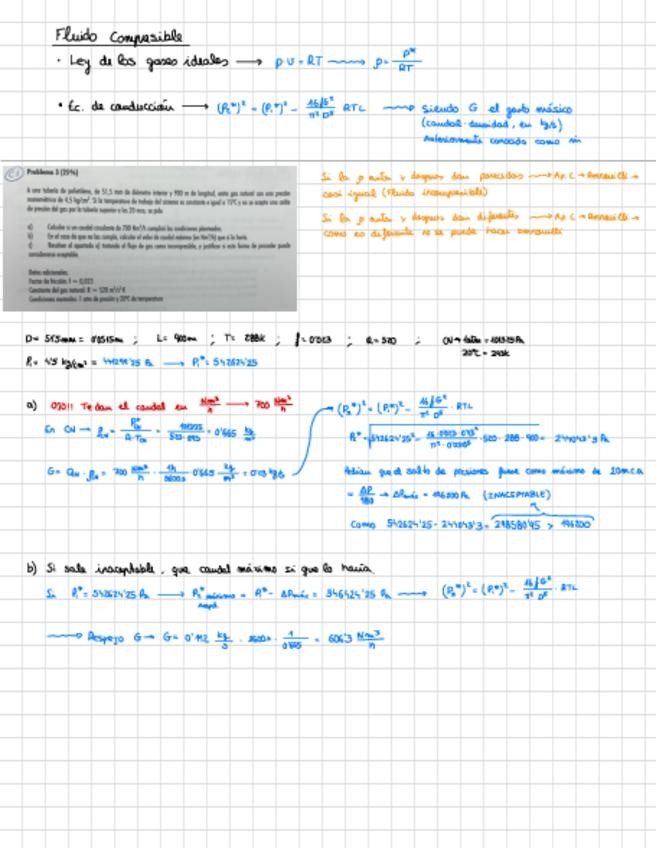 Fluido Compresible
· Ley de los gases ideales → p v = RT → ρ = P* / RT
· Ec. de conducción → (P₂*)² = (P₁*)² - 16fG² / π² D⁵ RTL → siendo G el gasto másico
(caudal · densidad, en kg/s)
Anteriormente conocido como ṁ
Problema 3 (25%)
A una tubería de polietileno, de 51,5 mm de diámetro interior y 900 m de longitud, entra gas natural con una presión
manométrica de 4,5 kg/cm². Si la temperatura de trabajo del sistema es constante e igual a 15ºC y no se acepta una caída
de presión del gas por la tubería superior a los 20 mca, se pide
a) Calcular si un caudal circulante de 700 Nm³/h cumplirá las condiciones planteadas.
b) En el caso de que no las cumpla, calcular el valor de caudal máximo (en Nm³/h) que sí lo haría.
c) Resolver el apartado a) tratando el flujo de gas como incompresible, y justificar si esta forma de proceder puede
considerarse aceptable.
Datos adicionales.
Factor de fricción: f = 0,023
Constante del gas natural: R = 520 m²/s²K
Condiciones normales: 1 atm de presión y 20ºC de temperatura
Si la ρ antes y después dan parecidas → Ap. C → Bernoulli →
casi igual (Fluido incompresible)
Si la ρ antes y después dan diferentes → Ap. C → Bernoulli →
como es diferente no se puede hacer Bernoulli
D = 51'5mm = 0'0515m ; L = 900m ; T = 288K ; f = 0'023 ; R = 520 ; CN → 1atm = 101325 Pa
20ºC = 293K
P₁ = 4'5 kg/cm² = 441299'25 Pa → P₁* = 542624'25
a) OJO!! Te dan el caudal en Nm³/h → 700 Nm³/h
En CN → ρ = P* / R·T = 101325 / 520·293 = 0'665 kg/m³
G = Q · ρ = 700 Nm³/h · 1h/3600s · 0'665 kg/m³ = 0'13 kg/s
(P₂*)² = (P₁*)² - 16fG² / π² D⁵ · RTL
P₂* = √ 542624'25² - 16·0'023·0'13² / π²·0'0515⁵ · 520 · 288 · 900 = 244043'3 Pa
Pedían que el salto de presiones fuese como máximo de 20 m.c.a
= ΔP → ΔP = 196200 Pa (INACEPTABLE)
Como 542624'25 - 244043'3 = 298580'95 > 196200
b) Si sale inaceptable, que caudal máximo si que lo haría.
Si P₁* = 542624'25 Pa → P₂* = P₁* - ΔP = 346424'25 Pa → (P₂*)² = (P₁*)² - 16fG² / π² D⁵ · RTL
→ Despejo G → G = 0'112 kg/s · 3600s · 1/0'665 = 606'3 Nm³/h